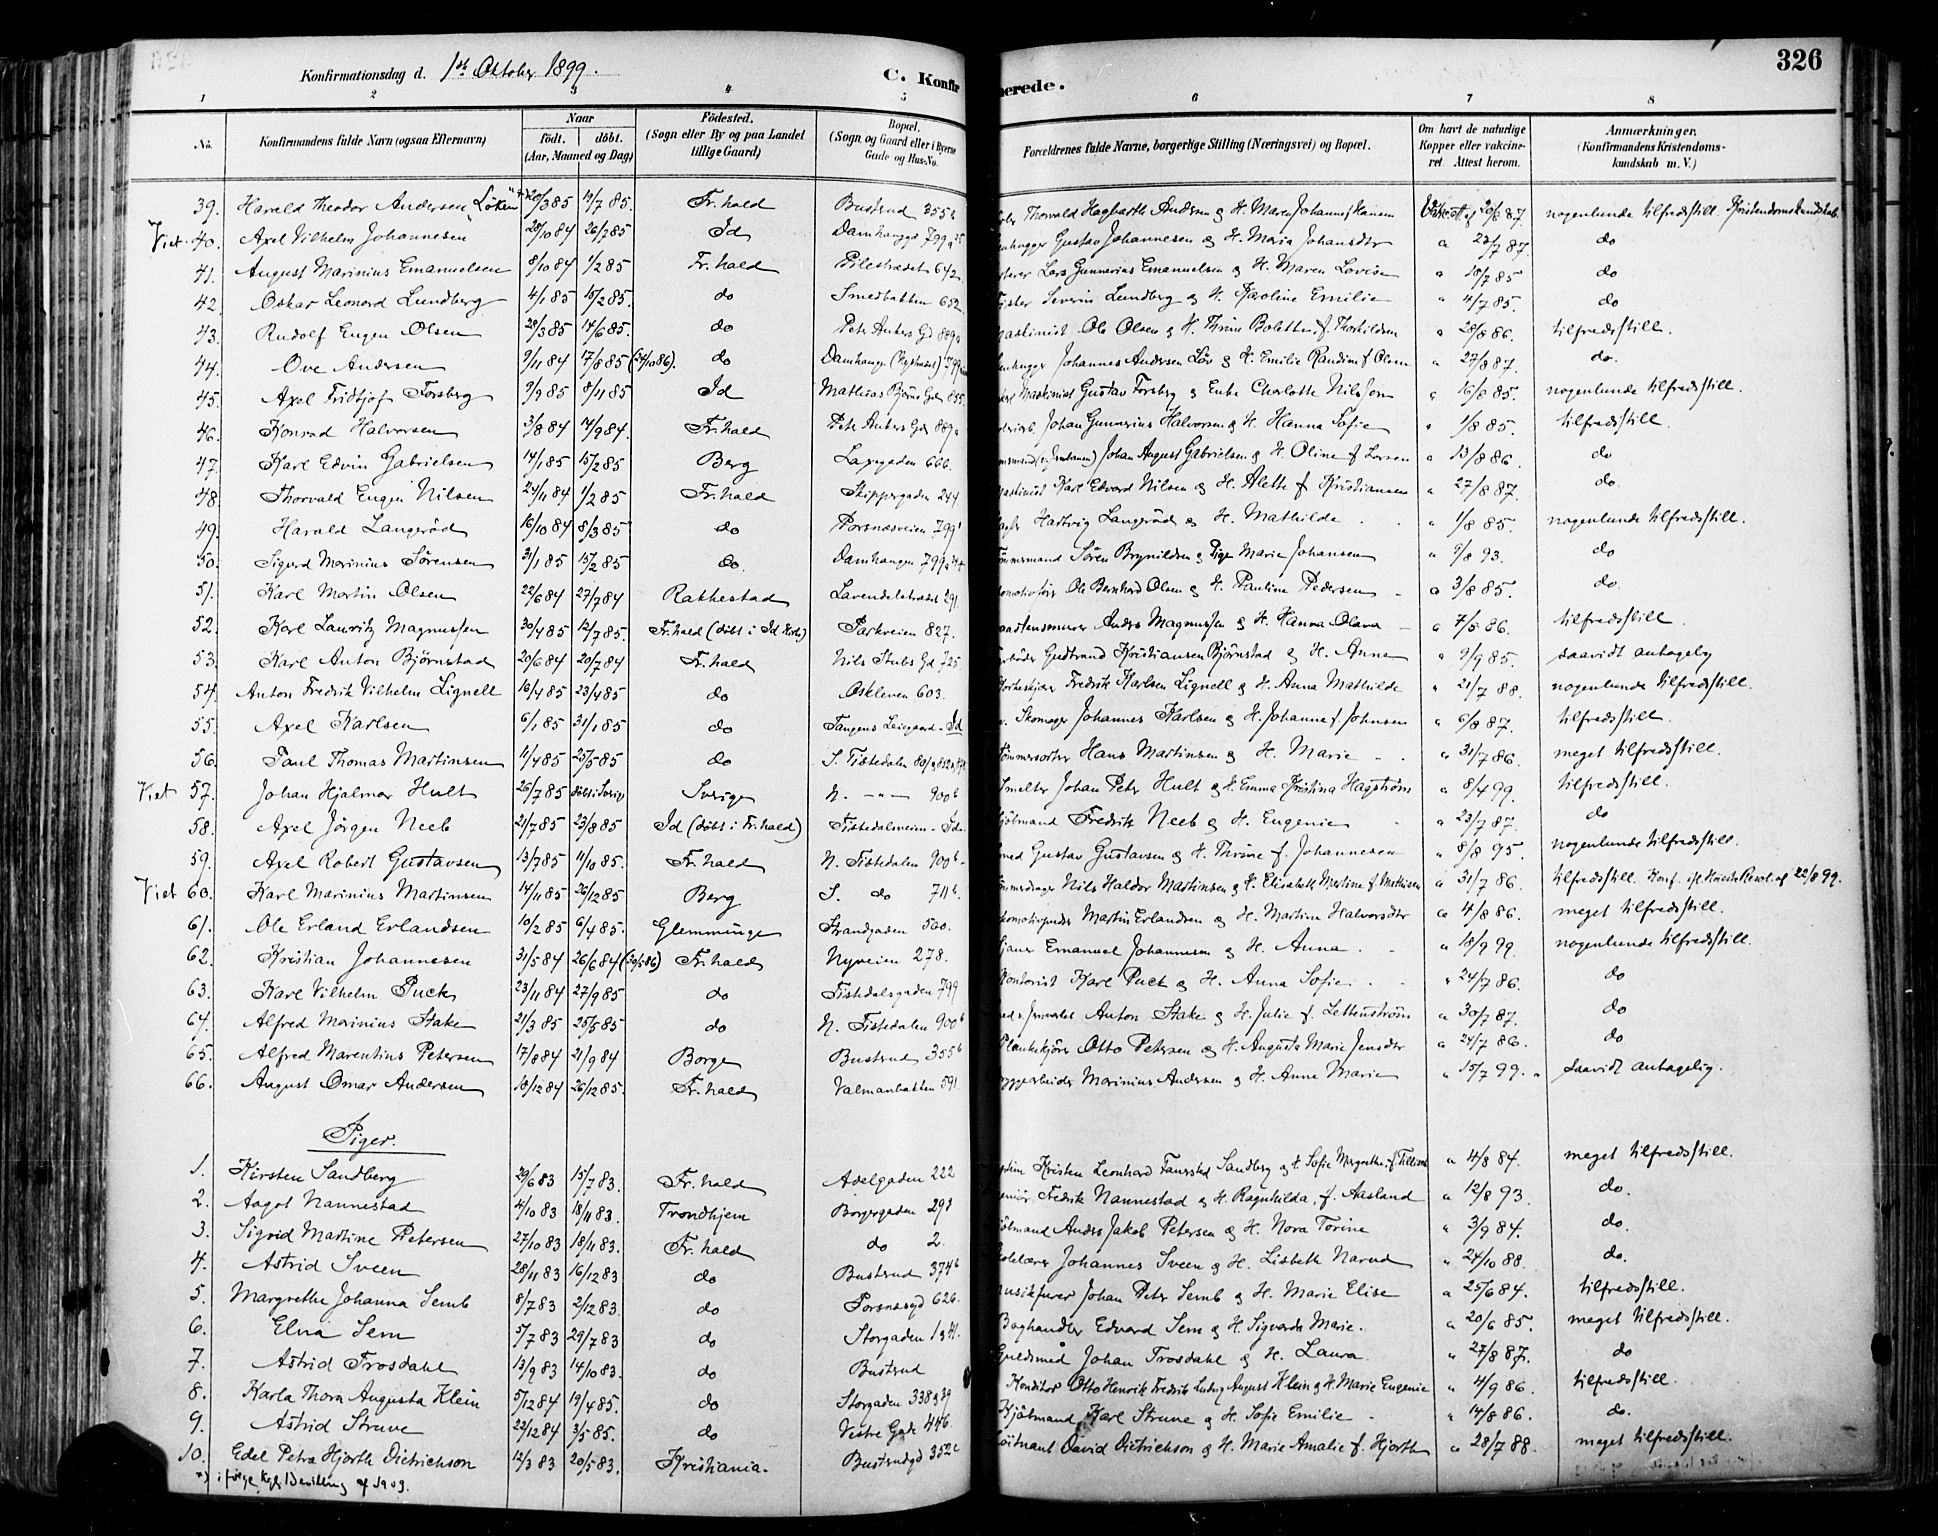 326
Konfirmationsdag d. 1ste Oktober 1899.
C. Konfir
merede.
1 2 3 4 5 6 7 8
No. Konfirmandens fulde Navn (ogsaa Efternavn) Naar födt. döbt. (Aar, Maaned og Dag) Födested. (Sogn eller By og paa Landet tillige Gaard) Bopæl. (Sogn og Gaard eller i Byerne Gade og Hus-No. Forældrenes fulde Navne, borgerlige Stilling (Næringsvei) og Bopæl. Om havt de naturlige Kopper eller vakcineret. Attest herom. Anmærkninger. (Konfirmandens Kristendomskundskab m. V.)
39. Harald Theodor Andersen Löken 20/3 85 12/7 85. Fr.hald Busterud 355 Thorvald Hagbarth Andersen & H. Maren 20/6 87. nogenlunde tilfredsstill. Kristendomskundskab.
Viet 40. Axel Vilhelm Johannesen 28/10 84 26/7 85 Id 799 Gustav Johannesen & H. Maria Johansdtr " 23/7 87. do
41. August Marinius Emanuelsen 8/10 84 1/2 85 Fr.hald Pilestrædet 642 Lars Gunnerius Emanuelsen & H. Maren Lovise " 18/7 85 do
42 Oskar Leonard Lundberg 4/1 85 15/2 85. do Smedbakken 652 Severin Lundberg & H. Karoline Emilie " 4/7 85. do
43. Rudolf Eugen Olsen 28/3 85 14/6 85. do Petr Ankers Gd 889a Maskinist Ole Olsen & H. Thrine Bolette f. Thorkildsen " 28/8 86. tilfredsstill.
44. Ove Andersen 9/11 84 17/8 85 do Johannes Andersen & H. Emilie Randine f. Olsen " 27/8 87. do.
45. Axel Fridtjof Forsberg 9/9 85 8/11 85 Id Mathias Bjørns Gd 855. Gustav Forsberg & Enke Charlotte Nilsson " 16/8 85. nogenlunde tilfredsstill.
46. Konrad Halvorsen 3/8 84 14/9 84. Fr.hald Petr Ankers Gd 889a Johan Gunnerius Halvorsen & H. Hanna Sofie " 1/8 85. tilfredsstill.
47. Karl Edvin Gabrielsen 14/1 85 15/2 85 Berg Laxegaden 666. Johan August Gabrielsen & H. Oline f. Larsen " 13/8 86. do
48. Thorvald Eugen Nilsen 24/11 84 1/2 85 Fr.hald Skippergaden 244 Maskinist Karl Edvard Nilsen & H. Alette f. Kristiansen " 27/8 87. do.
49. Harald Langeröd 16/10 84 8/3 85 do Porsnæsveien 799 Hartvig Langeröd & H. Mathilde " 1/8 85. nogenlunde tilfredsstill.
50. Sigurd Marinius Sörensen 31/1 85 15/2 85 do. Damhaugen 799 Tömmermand Sören Brynildsen & Pige Marie Johansen " 9/8 93. do
51. Karl Martin Olsen 22/6 84 27/7 84 Rakkestad Lavendelstrædet 291. Ole Bernhard Olsen & H. Pauline Pedersen " 3/8 85. do.
52. Karl Lauritz Magnussen 30/4 85 12/7 85. Fr.hald (döbt i Id Kirke) Parkveien 827. Anders Magnussen & H. Hanna Olava " 7/5 86. tilfredsstill.
53. Karl Anton Bjørnstad 20/6 84 20/7 84 Fr.hald Nils Stubs Gd 725 Gudbrand Kristiansen Bjørnstad & H. Anne " 9/9 85. saavidt antagelig
54. Anton Fredrik Vilhelm Lignell 16/4 85 23/4 85 do Oskleven 603. Fredrik Karlsen Lignell & H. Anna Mathilde " 21/7 88. nogenlunde tilfredsstill.
55. Axel Karlsen 6/1 85 31/1 85 do Tangens - Id Skomager Johannes Karlsen & H. Johanne f. Johnsen " 6/8 87. tilfredsstill.
56. Paul Thomas Martinsen 11/4 85 25/5 85 do S. Tistedalen Hans Martinsen & H. Marie " 31/7 86. meget tilfredsstill.
Viet 57. Johan Hjalmar Hult 26/7 85 döbt i Sverige Sverige N. - " - 900b Smelter Johan Peter Hult & H. Emma Kristina Hagström " 8/4 99. tilfredsstill.
58. Axel Jörgen Neeb 21/7 85 23/8 85 Id (döbt i Fr.hald) Tistedalsveien - Id. Kjöbmand Fredrik Neeb & H. Eugenie " 23/7 87. do
59. Axel Robert Gustavsen 13/7 85 11/10 85. Fr.hald N. Tistedalen 900b Gustav Gustavsen & H. Thrine f. Johannesen " 8/8 95. nogenlunde tilfredsstill.
Viet 60. Karl Marinius Martinsen 14/11 85 26/12 85 Berg S. do 711b Nils Haldor Martinsen & H. Elisabeth Martine f. Mathisen " 31/7 86. tilfredsstill. Konf. ifl. Resol. af 22/8 99.
61. Ole Erland Erlandsen 10/2 85 6/4 85. Glemminge Strandgaden 500. Martin Erlandsen & H. Martine Halvorsdtr " 4/8 86. meget tilfredsstill.
62. Kristian Johannesen 31/5 84 26/6 84 Fr.hald Nyveien 278. Emanuel Johannesen & H. Anna " 18/9 99. nogenlunde tilfredsstill.
63. Karl Vilhelm Puck 23/11 84 27/9 85 do Tistedalsgaden 799 Kontorist Karl Puck & H. Anna Sofie " 24/7 86. do
64. Alfred Marinius Stake 21/3 85 25/5 85 do N. Tistedalen 900b Anton Stake & H. Julie f. Lettenström " 30/7 87. do
65. Alfred Marentius Petersen 17/8 84 21/9 84 Borge Busterud 355b Plankekjörer Otto Petersen & H. Augusta Marie Jensdtr " 24/7 86. do
66. August Omar Andersen 18/12 84 26/12 85. Fr.hald Valmanbakken 591 Bryggearbeider Marinius Andersen & H. Anne Marie " 15/7 99. " saavidt antagelig.
Piger.
1. Kirsten Sandberg 29/6 83 15/7 83. Fr.hald Adelgaden 222 Kristen Leonhard Sandberg & H. Sofie Margrethe " 4/8 84. meget tilfredsstill.
2. Aagot Nannestad 14/10 83 18/11 83. Trondhjem Borgergaden 298 Fredrik Nannestad & H. Ragnhilda f. Aasland " 12/8 93. do.
3. Sigrid Martine Petersen 27/10 83 18/11 83. Fr.hald do 2. Kjöbmand Anders Jakob Petersen & H. Nora Torine " 3/9 84. do.
4. Astrid Sveen 28/11 83 16/12 83 do Busterud 374b Skolelærer Johannes Sveen & H. Lisbeth Narud " 24/10 88. do.
5. Margrethe Johanna Semb 8/7 83 2/12 83. do Porsnæsgd 626. Musikfører Johan Petr Semb & H. Marie Elise " 25/6 84. tilfredsstill.
6. Elna Sem 5/7 83 29/7 83 do Storgaden Boghandler Edvard Sem & H. Sigvarda Marie. " 20/6 85. meget tilfredsstill.
7. Astrid Trosdahl 13/9 83 14/10 83. do Busterud Guldsmed Johan Trosdahl & H. Laura. " 27/8 87. do
8. Karla Thora Augusta Klein 5/12 84 19/4 85. do Storgaden 338 & 39 Konditor Otto Henrik Fredrik Ludvig August Klein & H. Marie Eugenie " 4/9 86. tilfredsstill.
9. Astrid Struve 22/12 84 3/5 85. do Vestre Gade 446. Kjöbmand Karl Struve & H. Sofie Emilie " 14/8 86. do.
10. Edel Petra Hjorth Dietrichson 12/3 83 20/5 83. Kristiania. Busterudgd 352c Löitnant David Dietrichson & H. Marie Amalie f. Hjorth " 28/7 88. meget tilfredsstill.
*) ifølge Kgl. Bevilling af 1909.